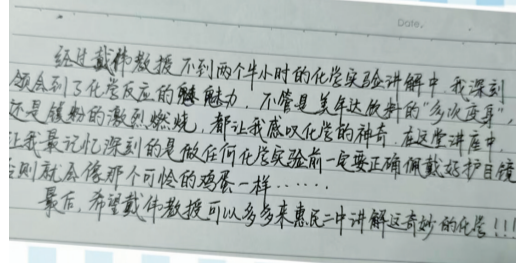 Date.
经过戴伟教授不到两个半小时的化学实验讲解中,我深刻
领会到了化学反应的魅力,不管是美年达饮料的"多次变身",
还是镁粉的激烈燃烧,都让我感叹化学的神奇.在这堂讲座中,
让我最记忆深刻的是做任何化学实验前一定要正确佩戴好护目镜
否则就会像那个可怜的鸡蛋一样……
最后,希望戴伟教授可以多多来惠民二中讲解这奇妙的化学!!!